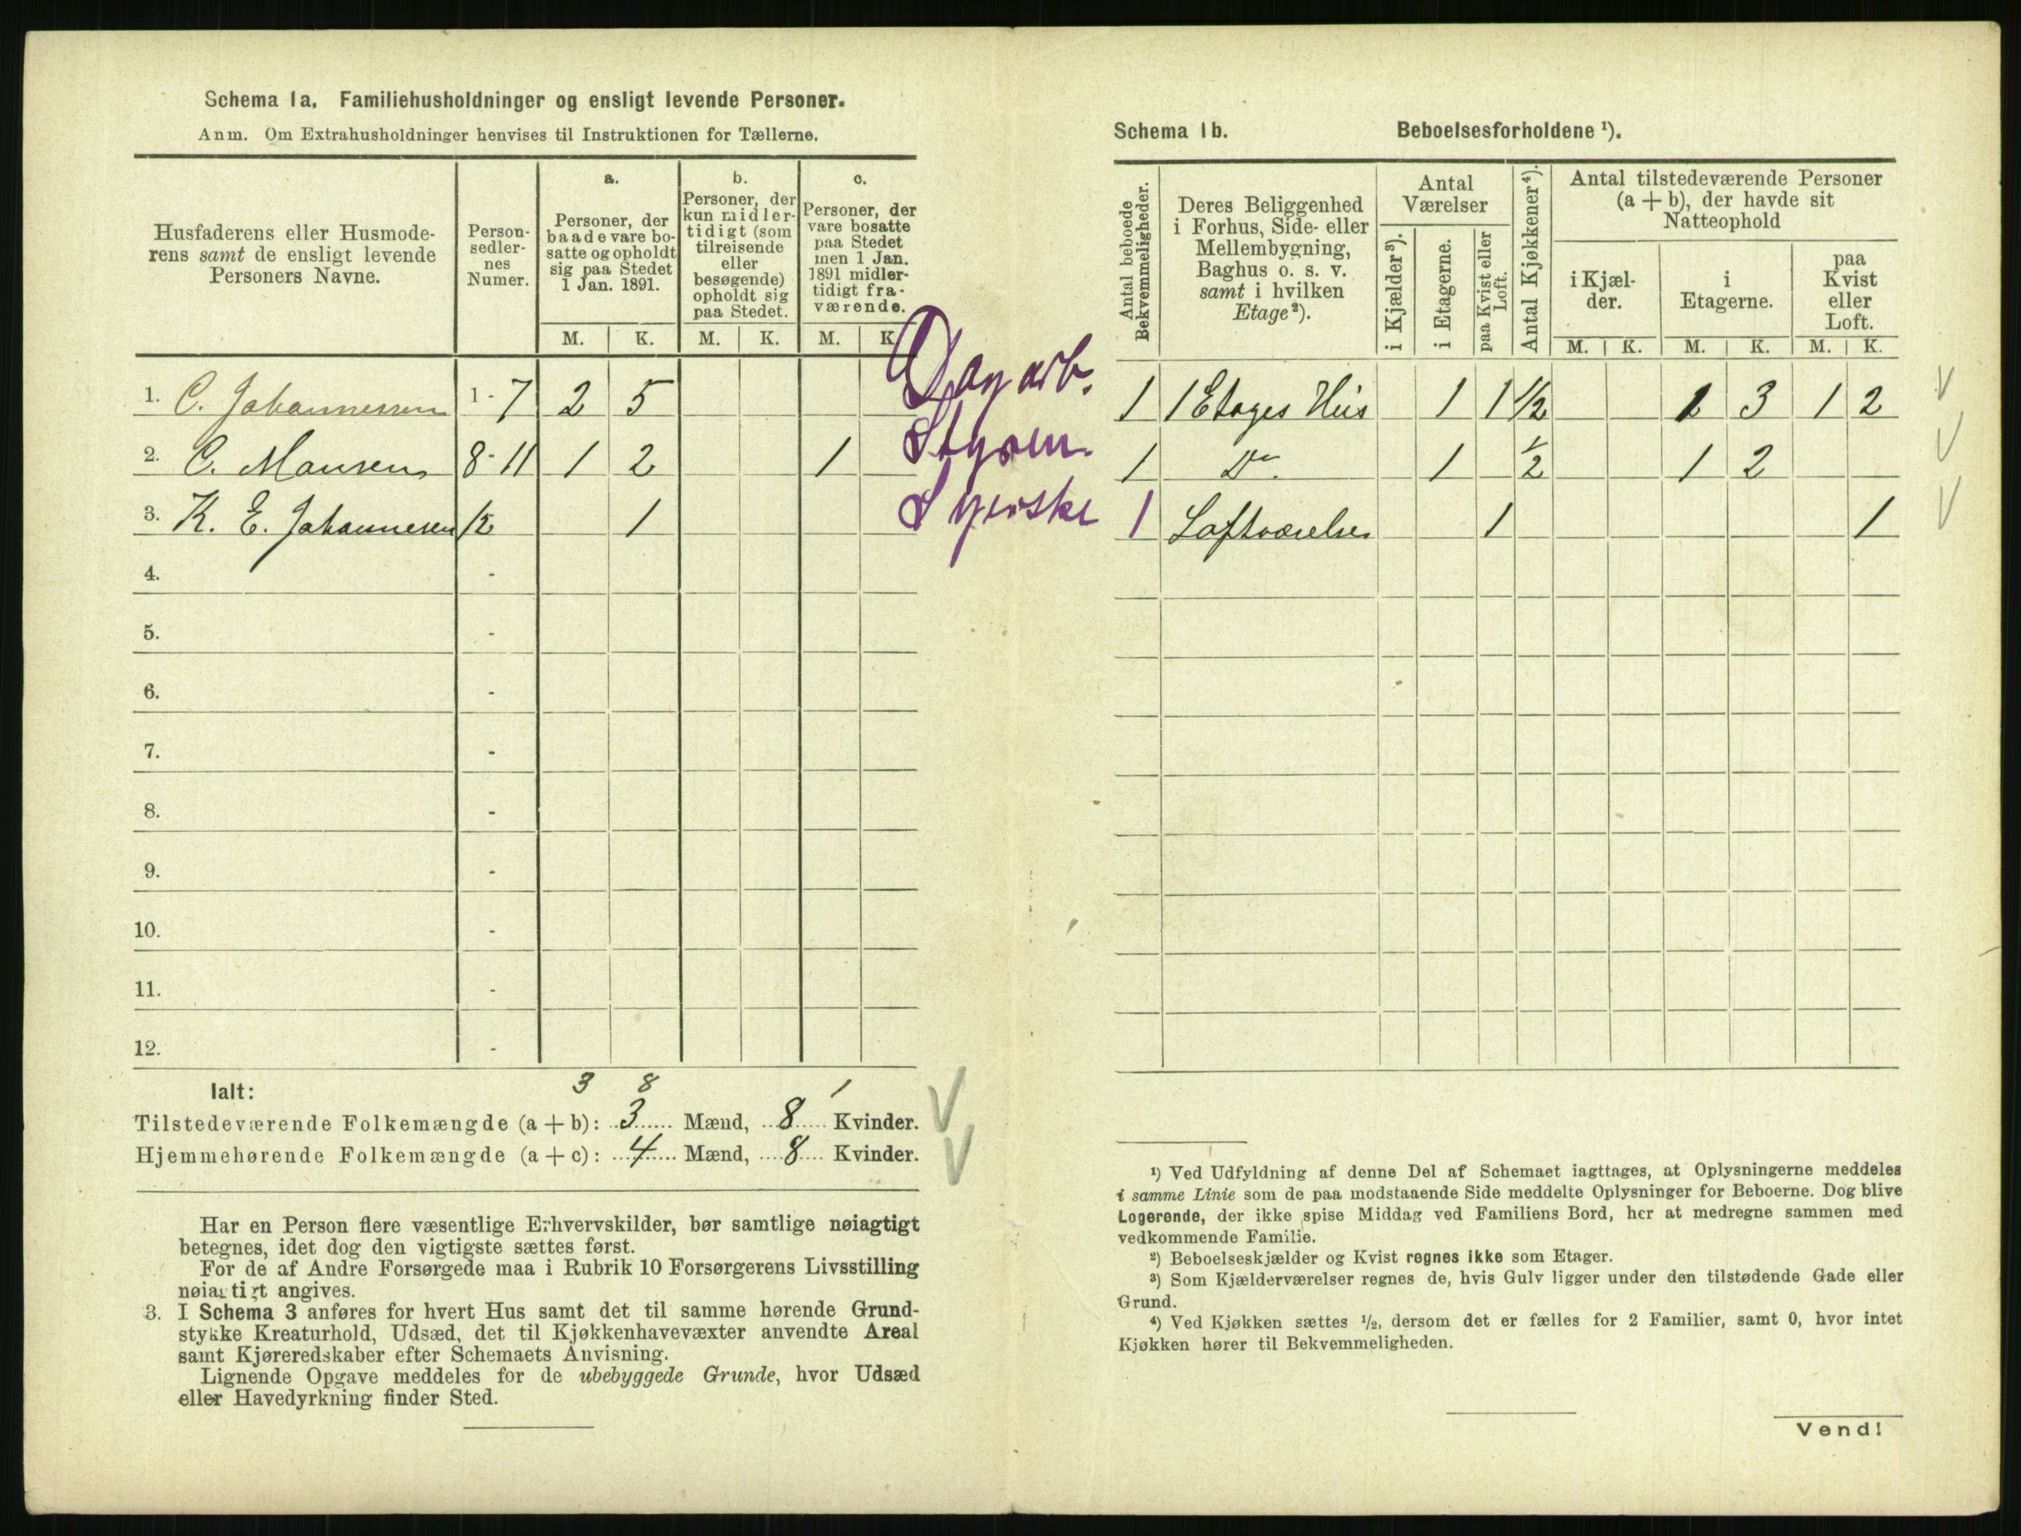 Schema 1a. Familiehusholdninger og ensligt levende Personer.
Anm. Om Extrahusholdninger henvises til Instruktionen for Tællerne.
Husfaderens eller Husmode-
rens samt de ensligt levende
Personers Navne.
Person-
sedler-
nes
Numer.
a.
Personer, der
baade vare bo-
satte og opholdt
sig paa Stedet
1 Jan. 1891.
b.
Personer, der
kun midler-
tidigt (som
tilreisende
eller
besøgende)
opholdt sig
paa Stedet.
c.
Personer, der
vare bosatte
paa Stedet
men 1 Jan.
1891 midler-
tidigt fra-
værende.
M. K. M. K. M. K.
1. C. Johannessen 1-7 2 5 Dagarb.
2. C. Mausen 8-11 1 2 1 Styrm.
3. K. E. Johannesen 12 1 Syerske
4. -
5. -
6. -
7. -
8. -
9. -
10. -
11. -
12. -
Ialt: 3 8 1
Tilstedeværende Folkemængde (a + b): 3 Mænd, 8 Kvinder.
Hjemmehørende Folkemængde (a + c): 4 Mænd, 8 Kvinder.
Har en Person flere væsentlige Erhvervskilder, bør samtlige nøiagtigt
betegnes, idet dog den vigtigste sættes først.
For de af Andre Forsørgede maa i Rubrik 10 Forsørgerens Livsstilling
nøiagtigt angives.
3. I Schema 3 anføres for hvert Hus samt det til samme hørende Grund-
stykke Kreaturhold, Udsæd, det til Kjøkkenhavevæxter anvendte Areal
samt Kjøreredskaber efter Schemaets Anvisning.
Lignende Opgave meddeles for de ubebyggede Grunde, hvor Udsæd
eller Havedyrkning finder Sted.
Schema 1b. Beboelsesforholdene ¹).
Antal beboede
Bekvemmeligheder.
Deres Beliggenhed
i Forhus, Side- eller
Mellembygning,
Baghus o. s. v.
samt i hvilken
Etage²).
Antal
Værelser
i Kjælder³).
i Etagerne.
paa Kvist eller
Loft.
Antal Kjøkkener⁴).
Antal tilstedeværende Personer
(a + b), der havde sit
Natteophold
i Kjæl-
der.
i
Etagerne.
paa
Kvist
eller
Loft.
M. K. M. K. M. K.
1 1 Etages Hus 1 1 1/2 1 3 1 2
1 Do 1 1/2 1 2
1 Loftværelse 1 1
¹) Ved Udfyldning af denne Del af Schemaet iagttages, at Oplysningerne meddeles
i samme Linie som de paa modstaaende Side meddelte Oplysninger for Beboerne. Dog blive
Logerende, der ikke spise Middag ved Familiens Bord, her at medregne sammen med
vedkommende Familie.
²) Beboelseskjælder og Kvist regnes ikke som Etager.
³) Som Kjælderværelser regnes de, hvis Gulv ligger under den tilstødende Gade eller
Grund.
⁴) Ved Kjøkken sættes ½, dersom det er fælles for 2 Familier, samt 0, hvor intet
Kjøkken hører til Bekvemmeligheden.
Vend!